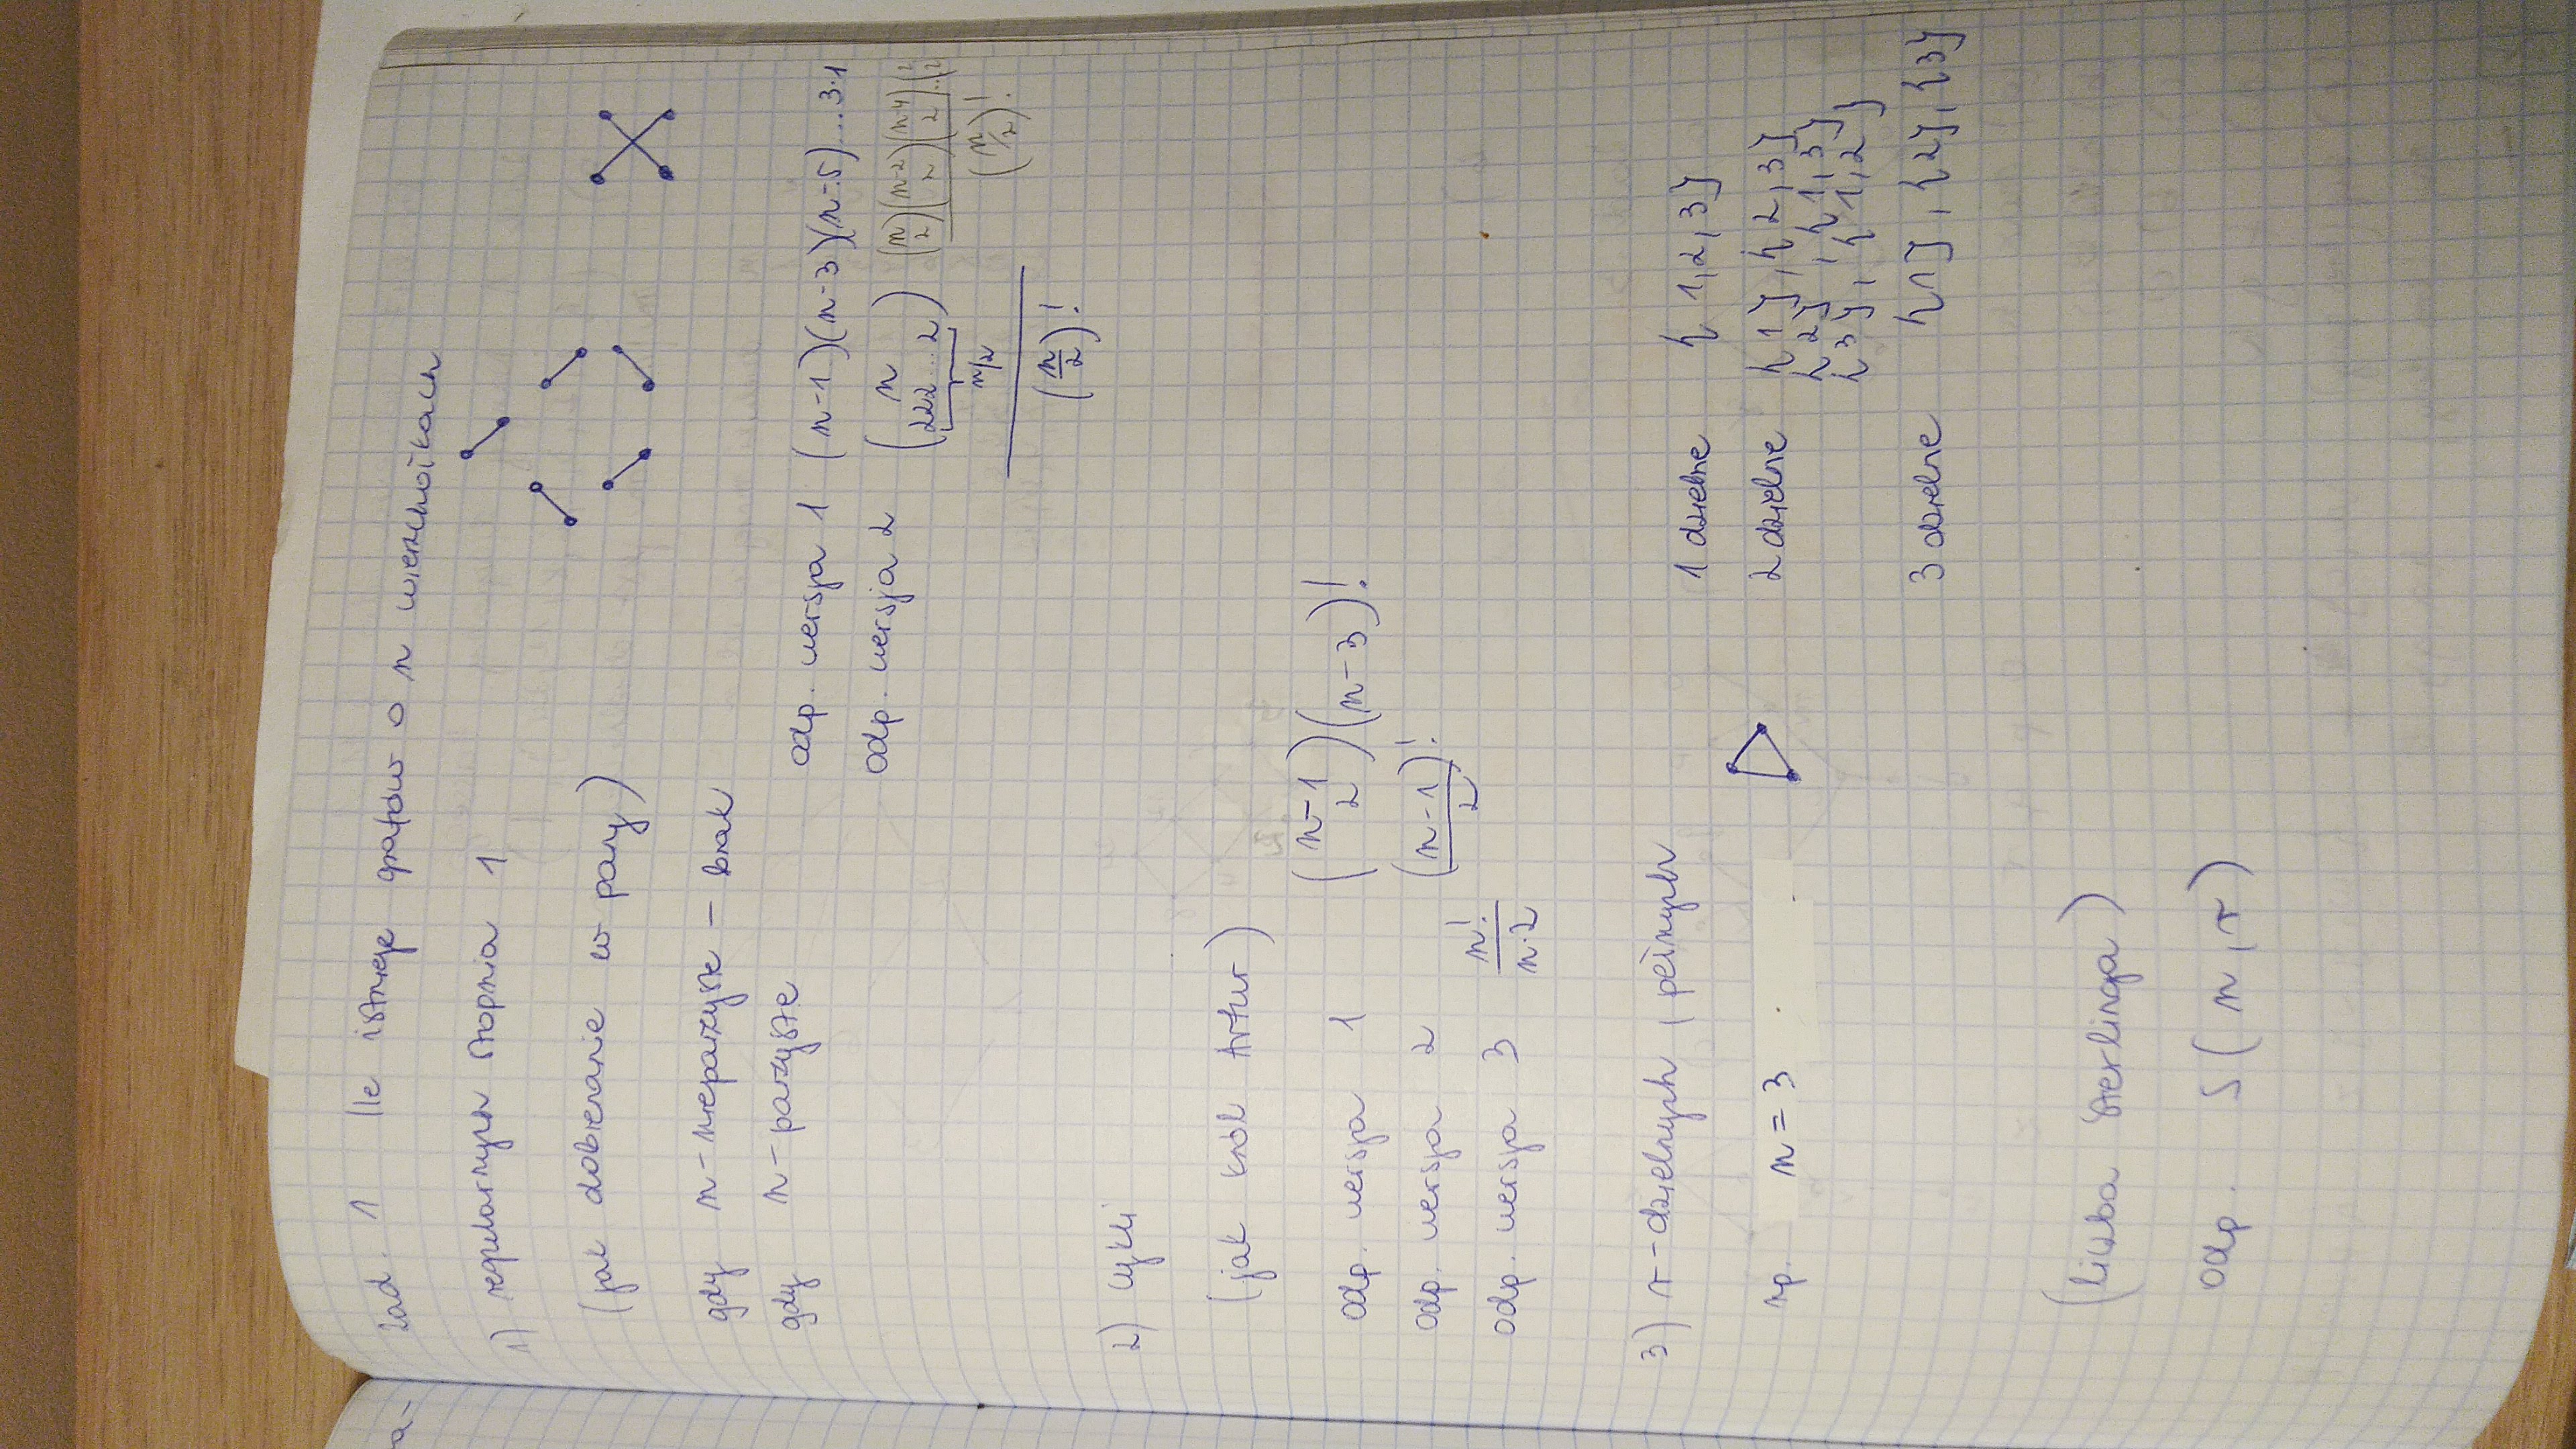 a-
Zad. 1 Ile istnieje grafów o n wierzchołkach
1) regularnych stopnia 1
(jak dobieranie w pary)
gdy n - nieparzyste - brak
gdy n - parzyste
odp. wersja 1 (n-1)(n-3)(n-5)...3·1
odp. wersja 2 (n 222...2) / (n/2)! (n 2)(n-2 2)(n-4 2)...(2 2) / (n/2)!
n/2
2) cykli
(jak król Artur)
odp. wersja 1 (n-1 2)(n-3)!
odp. wersja 2 (n-1)!/2
odp. wersja 3 n!/n·2
3) r-dzielnych, pełnych
np. n = 3
1 dzielne {1,2,3}
2 dzielne {1}, {2,3}
{2}, {1,3}
{3}, {1,2}
3 dzielne {1}, {2}, {3}
(liczba Sterlinga)
odp. S(n,r)